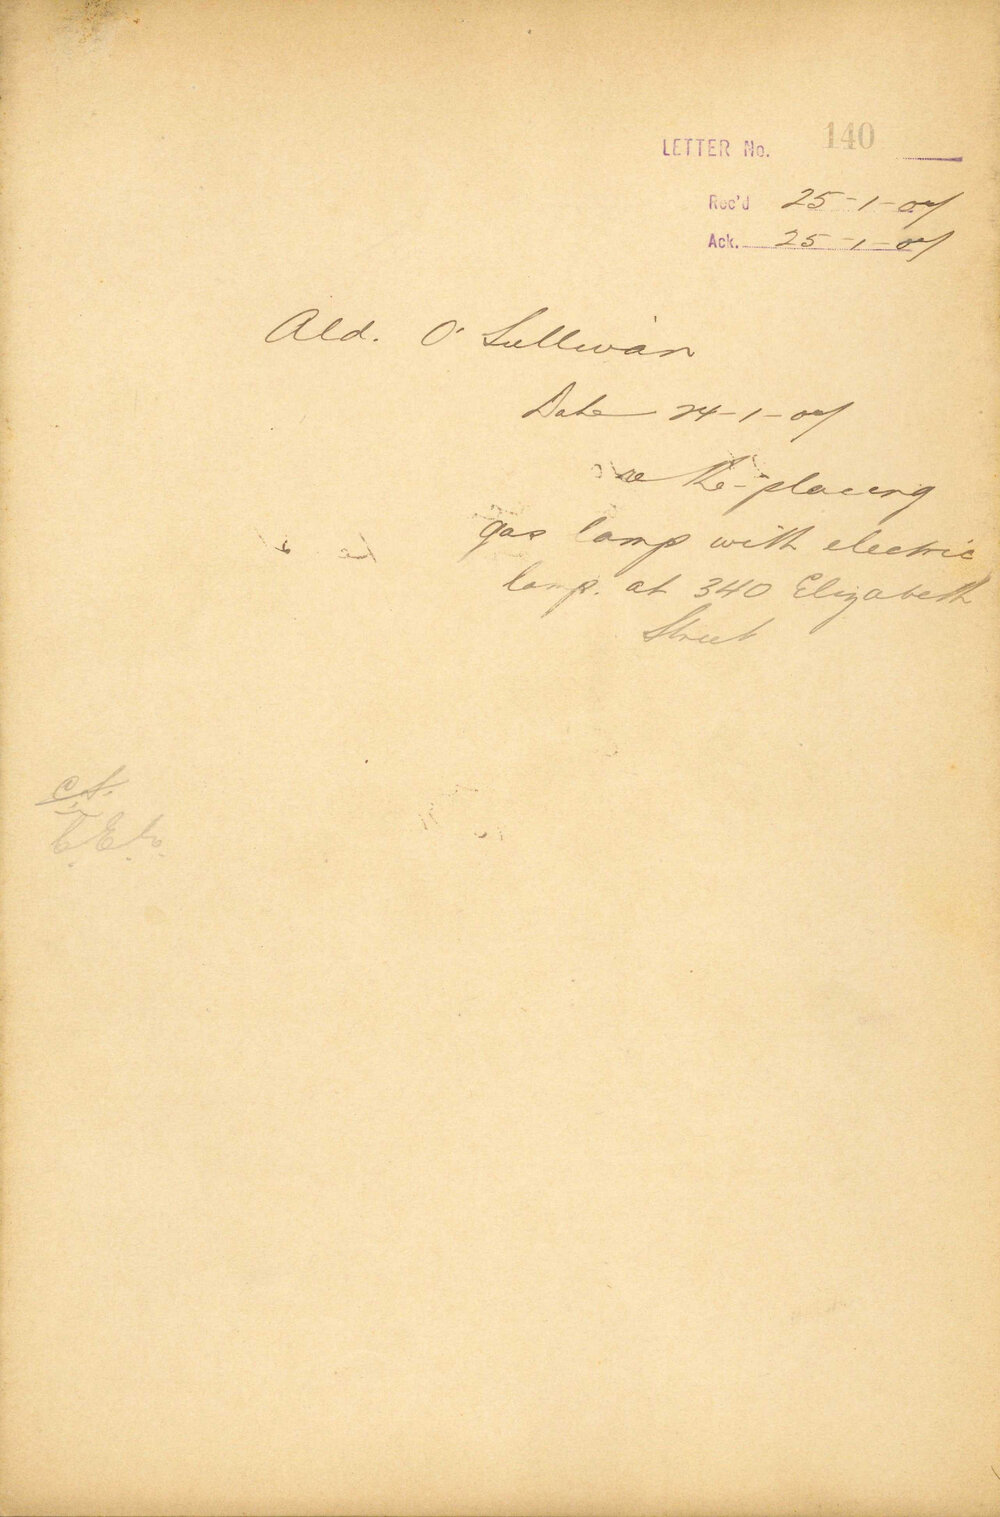 LETTER No. 140
Rec'd 25-1-07
Ack. 25-1-07
Ald. O'Sullivan
Date 24-1-07
re the-placing
gas lamp with electric
lamp. at 340 Elizabeth
Street
C.S.